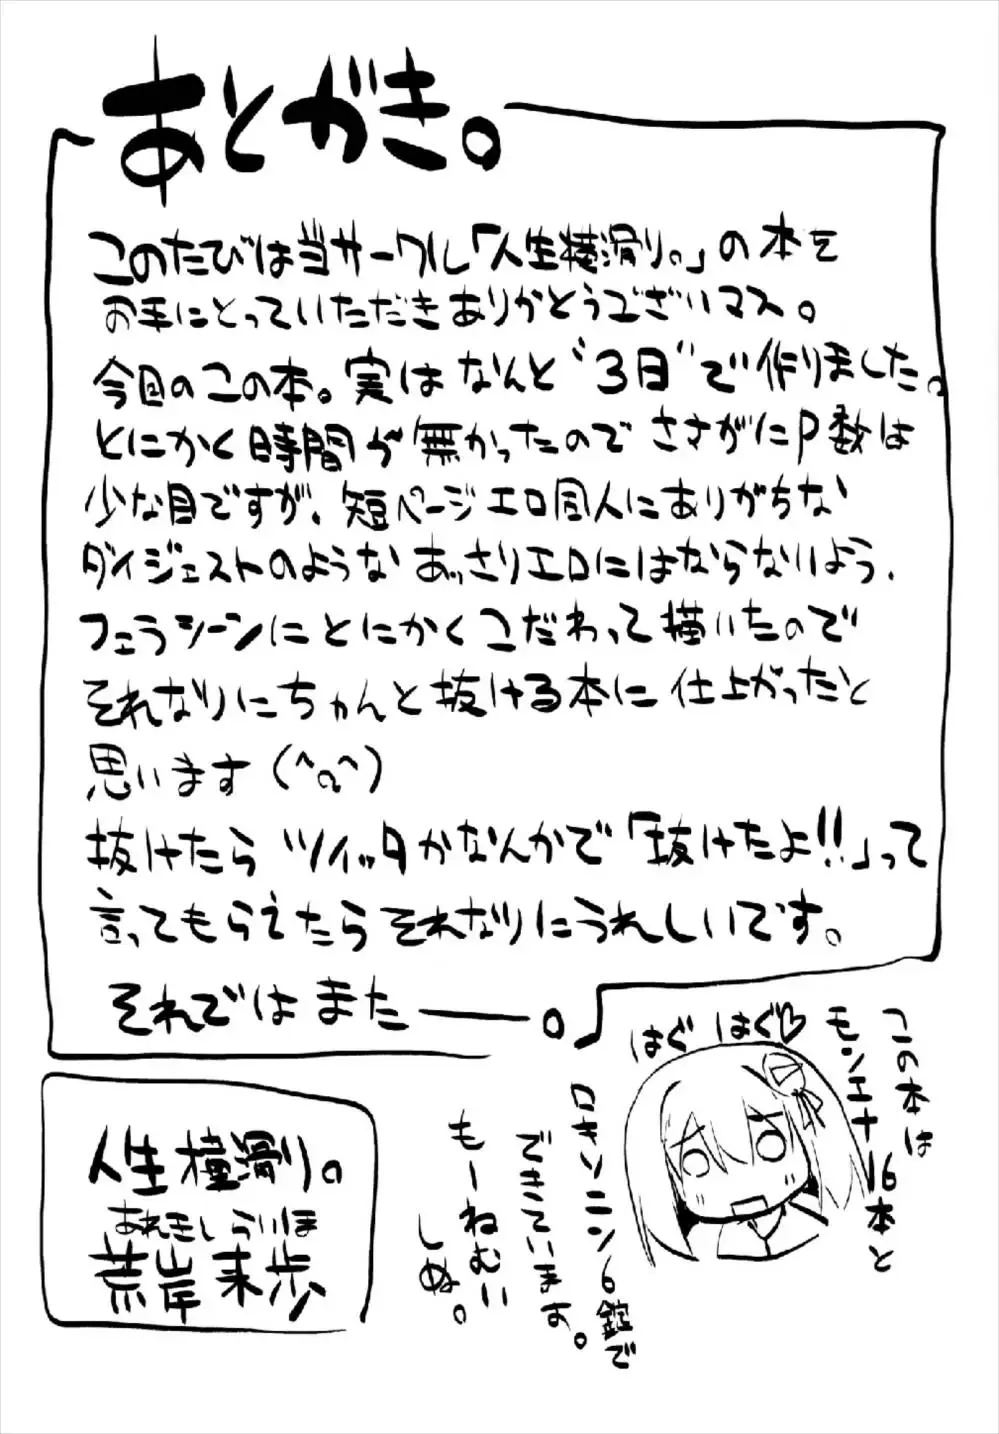 あとがき。
このたびは当サークル「人生横滑り。」の本を
お手にとっていただきありがとうございマス。
今回のこの本。実はなんと"3日"で作りました。
とにかく時間が無かったのでささがにP数は
少な目ですが、短ページエロ同人にありがちな
ダイジェストのようなあっさりエロにはならないよう、
フェラシーンにとにかくこだわって描いたので
それなりにちゃんと抜ける本に仕上がったと
思います(^q^)
抜けたらツイッタかなんかで「抜けたよ!!」って
言ってもらえたらそれなりにうれしいです。
それではまたー。
はぐはぐ♡
この本は
モンエナ16本と
ロキソニン6錠で
できています。
もーねむい
しぬ。
人生横滑り。
あれきしらいほ
荒岸来歩